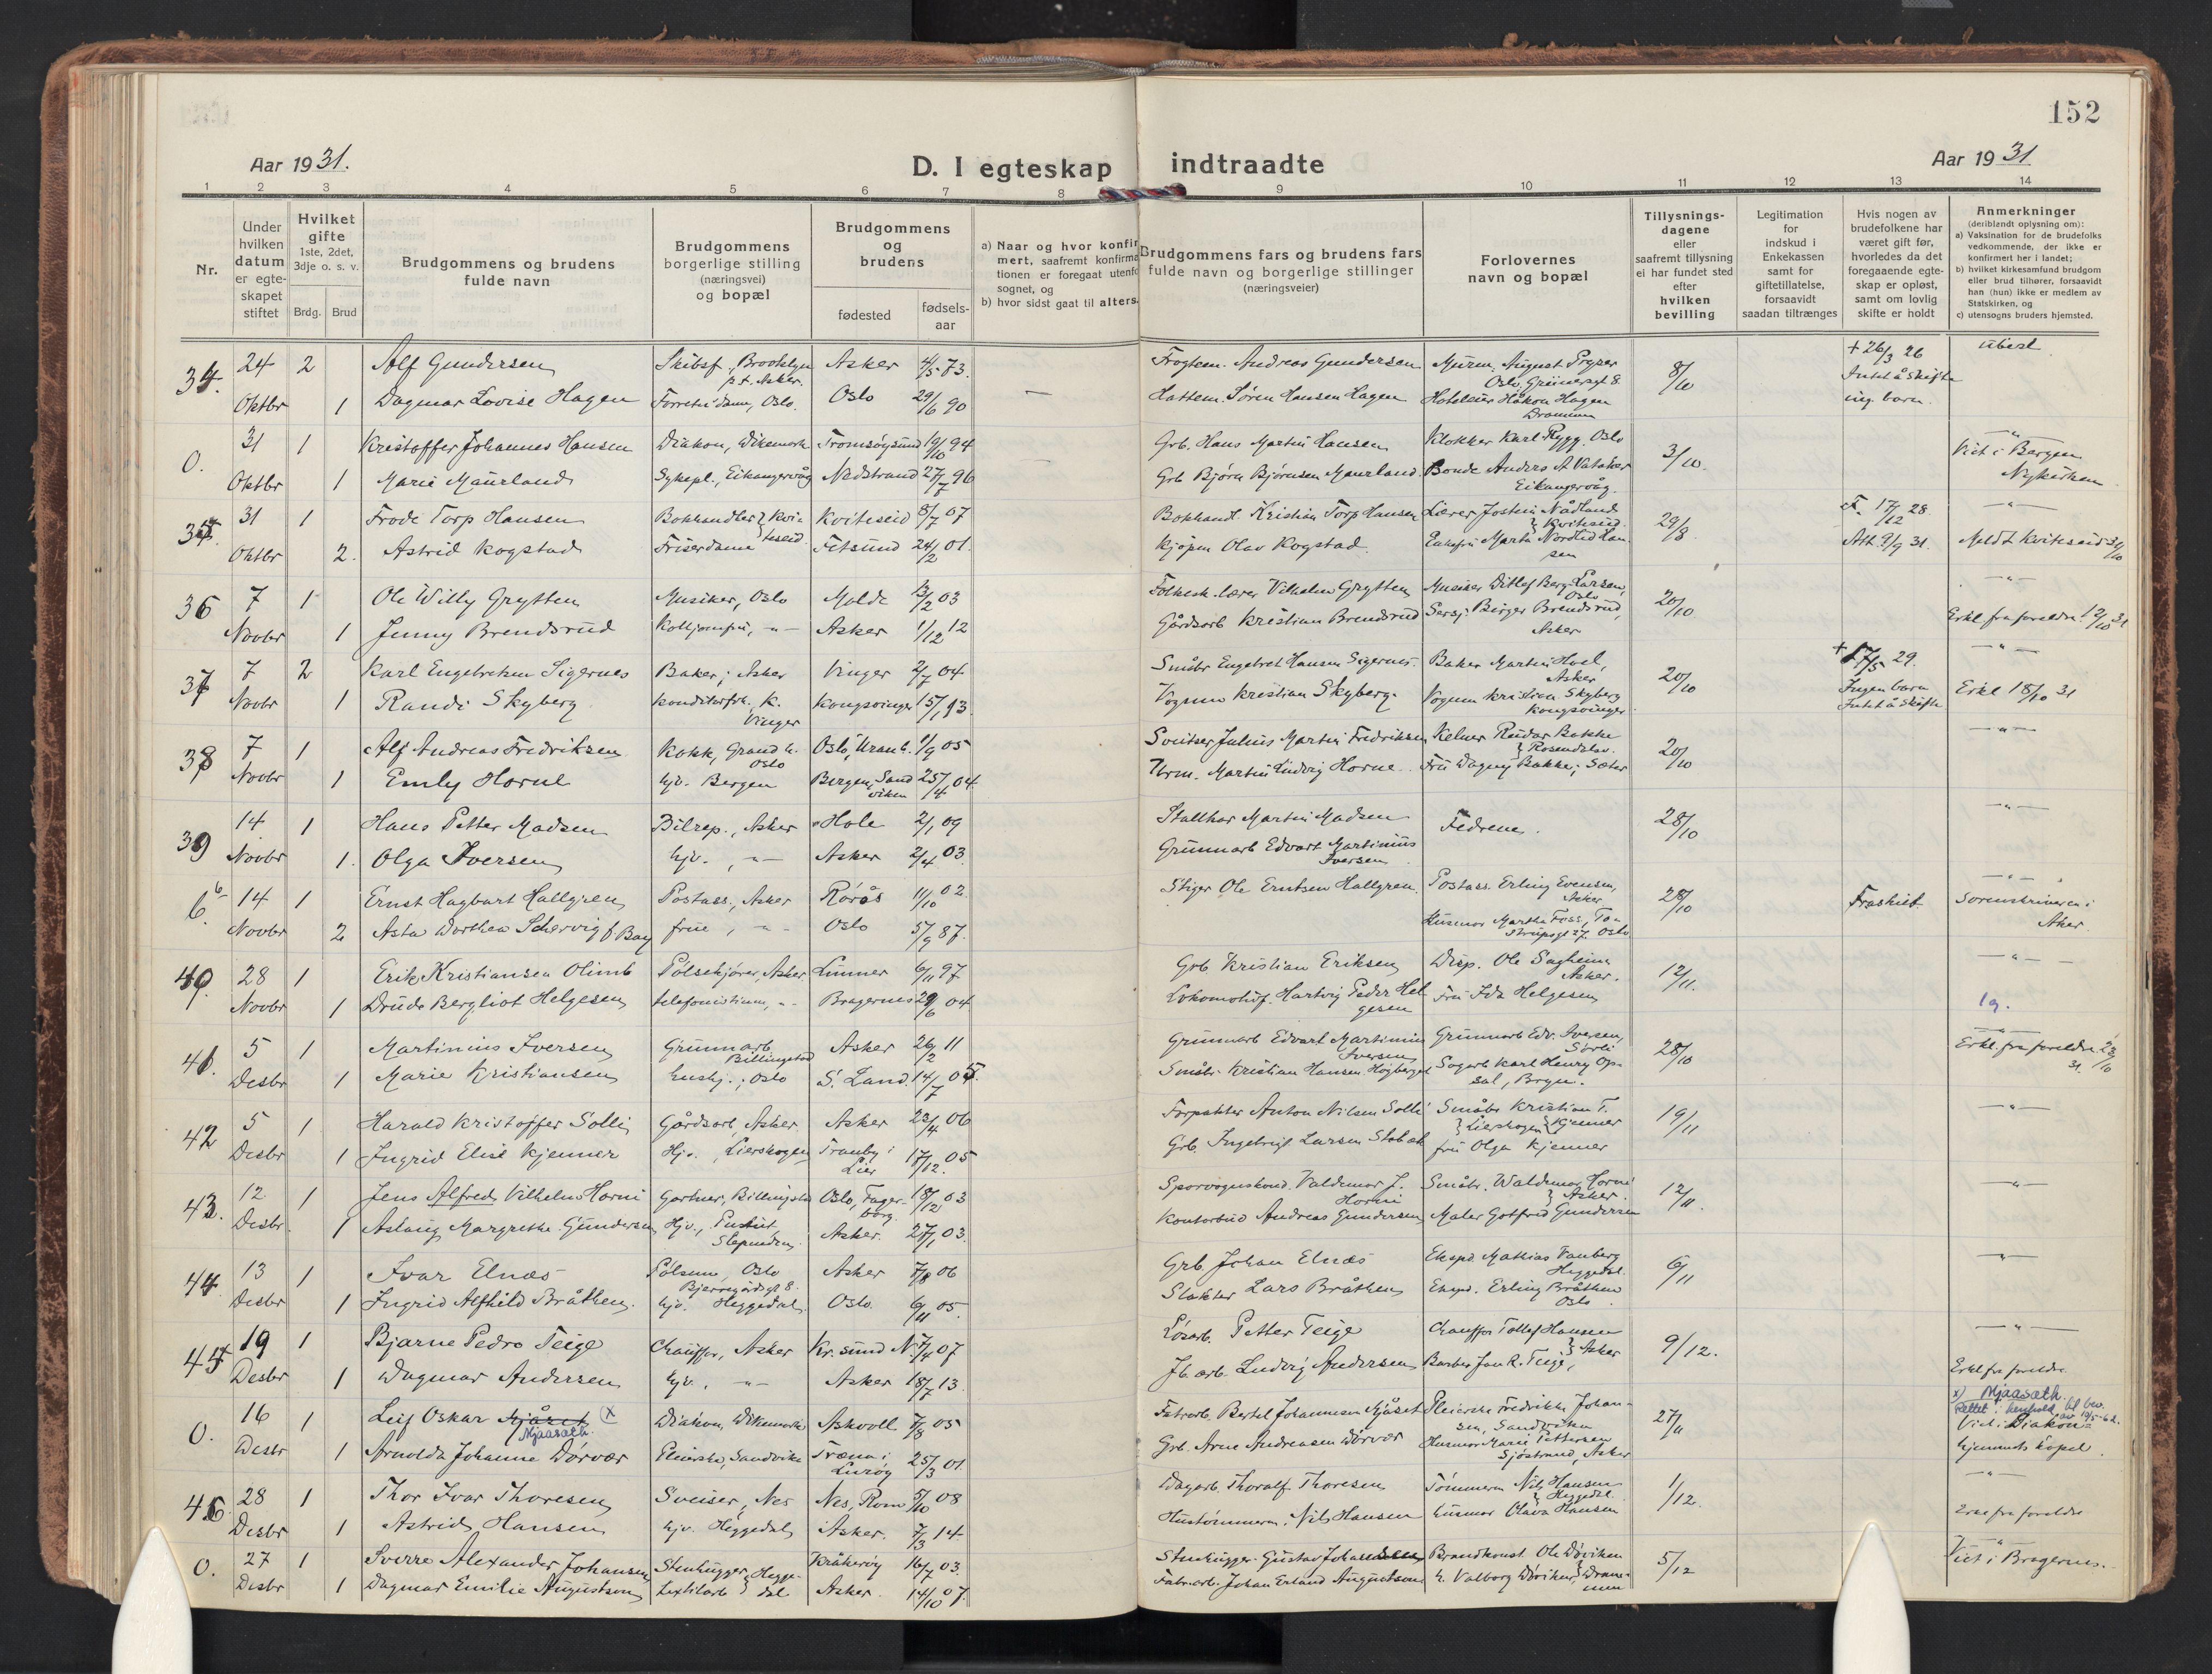 152
Aar 1931.
D. I egteskap indtraadte
Aar 1931
1 2 3 4 5 6 7 8 9 10 11 12 13 14
Nr.
Under hvilken datum er egteskapet stiftet
Hvilket gifte 1ste, 2det, 3dje o. s. v.
Brdg. Brud
Brudgommens og brudens fulde navn
Brudgommens borgerlige stilling (næringsvei) og bopæl
Brudgommens og brudens
fødested
fødselsaar
a) Naar og hvor konfirmert, saafremt konfirmationen er foregaat utenfor sognet, og
b) hvor sidst gaat til alters.
Brudgommens fars og brudens fars fulde navn og borgerlige stillinger (næringsveier)
Forlovernes navn og bopæl
Tillysningsdagene eller saafremt tillysning ei har fundet sted efter hvilken bevilling
Legitimation for indskud i Enkekassen samt for giftetillatelse, forsaavidt saadan tiltrænges
Hvis nogen av brudefolkene har været gift før, hvorledes da det foregaaende egteskap er opløst, samt om lovlig skifte er holdt
Anmerkninger (deriblandt oplysning om):
a) Vaksination for de brudefolks vedkommende, der ikke er konfirmert her i landet;
b) hvilket kirkesamfund brudgom eller brud tilhører, forsaavidt han (hun) ikke er medlem av Statskirken, og
c) utensogns bruders hjemsted.
34. 24 2 Alf Gundersen Skibsf., Brooklyn p.t. Asker. Asker 4/5 73. Andreas Gundersen Murm. August Pryser Oslo, Grünersgt 8 8/10 + 26/3 26 Intet å skifte ing. barn ubert
Oktbr 1 Dagmar Lovise Hagen Oslo. Oslo 29/6 90 Hattem. Søren Hansen Hagen Håkon Hagen Drammen
0. 31 1 Kristoffer Johannes Hansen Diakon, Dikemark Tromsøysund 19/10 94 Grb. Hans Martin Hansen Klokker Karl Rygg, Oslo 3/10. Viet i Bergen Nykirken
Oktbr 1 Marie Maurland Sykepl., Eikangervåg Nedstrand 27/7 96 Grb Bjørn Bjørnsen Maurland Bonde Anders A. Vatsker Eikangervåg
35. 31 1 Frode Torp Hansen Bokhandler Kviteseid Kviteseid 8/7 07 Bokhandl. Kristian Torp Hansen Lærer Jostein Nådland Kviteseid 29/8 F. 17/12 28.
Oktbr 2. Astrid Kogstad Friserdame Fetsund 24/2 01. Kjøpm Olav Kogstad Marta Nordlid Hansen Att. 9/9 31. Meldt Kviteseid 31/10
36 7 1 Ole Willy Grytten Musiker, Oslo Molde 13/2 03 Folkesk. lærer Vilhelm Grytten Musiker Ditlef Berg-Larsen, Oslo 20/10
Novbr 1 Jenny Brendsrud Asker 1/12 12 Gårdsarb Kristian Brendsrud Sersj. Birger Brendsrud, Asker Erkl fra foreldre 12/10 31
37 7 2 Karl Engebretsen Sigernes Baker, Asker Vinger 2/7 04 Småbr Engebret Hansen Sigernes. Baker Martin Hoel, Asker 20/10 + 17/5 29.
Novbr 1 Randi Skyberg Konditorfrk., K. Vinger Kongsvinger 15/1 93 Vognm Kristian Skyberg Vognm Kristian Skyberg Kongsvinger Ingen barn Intet å skifte Erkl 18/10 31
38 7 1 Alf Andreas Fredriksen Kokk, Grand h. Oslo Oslo, Uranb. 1/9 05 Sveitser Julius Martin Fredriksen Kelner Reidar Bakke Rosendslav. 20/10
Novbr 1 Emly Horne hjv. Bergen Bergen, Sandviken 25/4 04. Urm. Martin Ludvig Horne Frú Dagny Bakke, Sæter
39 14. 1 Hans Petter Madsen Bilrep., Asker Hole 2/1 09 Stallkar Martin Madsen Fedrene. 28/10
Novbr 1. Olga Iversen hjv. Asker 2/4 03. Grunnarb Edvart Martinius Iversen
6. 14 1 Ernst Hagbart Hallgren Postass., Asker Rørås 11/10 02. Stiger Ole Erntsen Hallgren Postass. Erling Evensen, Asker 28/10 Fraskilt Sorenskriveren i Aker
Novbr 2 Asta Dorthea Schervig f Bay frue, Oslo 5/9 87. Husmor Martha Foss, Oslo
40. 28 1 Erik Kristiansen Olimb Pølsekjører, Asker Lunner 6/11 97 Grb Kristian Eriksen Disp. Ole Sagheim Asker. 12/11.
Novbr 1 Drude Bergliot Helgesen telefonistinne, Bragernes 29/6 04. Lokomotivf. Hartvig Peder Helgesen Frú Ida Helgesen
41. 5 1 Martinius Iversen Grunnarb Billingstad Asker 26/2 11 Grunnarb Edvart Martinius Iversen Grunnarb Edv. Iversen, Sørli 28/10 Erkl. fra foreldre 23/10 31.
Desbr 1 Marie Kristiansen hushj., Oslo S. Land. 14/7 05. Småbr. Kristian Hansen Høgberget Sagarb Karl Henry Opsal, Bryn.
42 5 1 Harald Kristoffer Solli Gårdsarb, Asker Asker 23/4 06 Forpakter Anton Nilsen Solli Småbr Kristian T. Kjenner 19/11
Desbr 1 Ingrid Elise Kjenner Hjv. Lierskogen Tranby i Lier 17/12. 05 Grb. Ingebrigt Larsen Stabæk frú Olga Kjenner Lierskogen
43. 12 1 Jens Alfred Vilhelm Horni Gartner, Billingstad Oslo, Fagerborg 18/12 03 Sporvognskond. Valdemar J. Horni Småbr. Waldemar Horni Asker. 12/11.
Desbr. 1 Aslaug Margrethe Gundersen Hjv., Slependen Asker. 27/1 03. Kontorbud Andreas Gundersen Maler Gotfred Gundersen
44 13 1 Ivar Elnæs Pølsem, Oslo Asker 7/8 06 Grb Johan Elnæs Eksped Mathias Vauberg Heggedal. 6/11
Desbr 1 Ingrid Alfhild Bråthen. hjv. Heggedal Oslo. 6/11 05. Slakter Lars Bråthen Eksped. Erling Bråthen Oslo.
45 19 1 Bjarne Pedro Teige Chauffør, Asker Kr.sund N. 7/4 07 Løsarb. Petter Teige Chauffør Tollef Hansen Asker 9/12.
Desbr 1 Dagmar Andersen hjv. Asker 18/7 13. Jb. arb. Ludvig Andersen Barber Jan R. Teige, Erkl fra foreldre
0. 16 1 Leif Oskar Mjåset (x Mjaasæth. Diakon, Dikemark Askvoll 7/8 05 Fabrarb. Bertel Johannesen Mjåset Pleierske Fredrikke Johansen, Sandviken 27/11 x) Mjaasæth. Rettet i henhold til bev. av 19/5-62. Viet i Diakonhjemmets kapel.
Desbr 1 Arnolda Johanne Dørvær Pleierske, Sandvika Træna i Lurøy 25/3 01. Grb. Arne Andreasen Dørvær Husmor Marie Pettersen Sjøstrand, Asker
46. 28 1 Thor Ivar Thoresen Sveiser, Nes Nes, Rom 5/10 08 Dagarb. Thoralf Thoresen Tømmerm Nils Hansen Heggedal. 1/12.
Desbr 1 Astrid Hansen hjv. Heggedal Asker. 7/3 14. Hustømmerm. Nils Hansen husmor Olava Hansen Erkl fra foreldre
0. 27 1 Sverre Alexander Johansen Stenhugger Heggedal Kråkerøy 16/7 03. Stenhugger Gustav Johansen Brandkonst. Ole Døviken 5/12 Viet i Bragernes.
Desbr 1 Dagmar Emilie Augustson textilarb Asker. 14/10 07. Fabr.arb. Johan Erland Augustson h. Valborg Døviken, Drammen